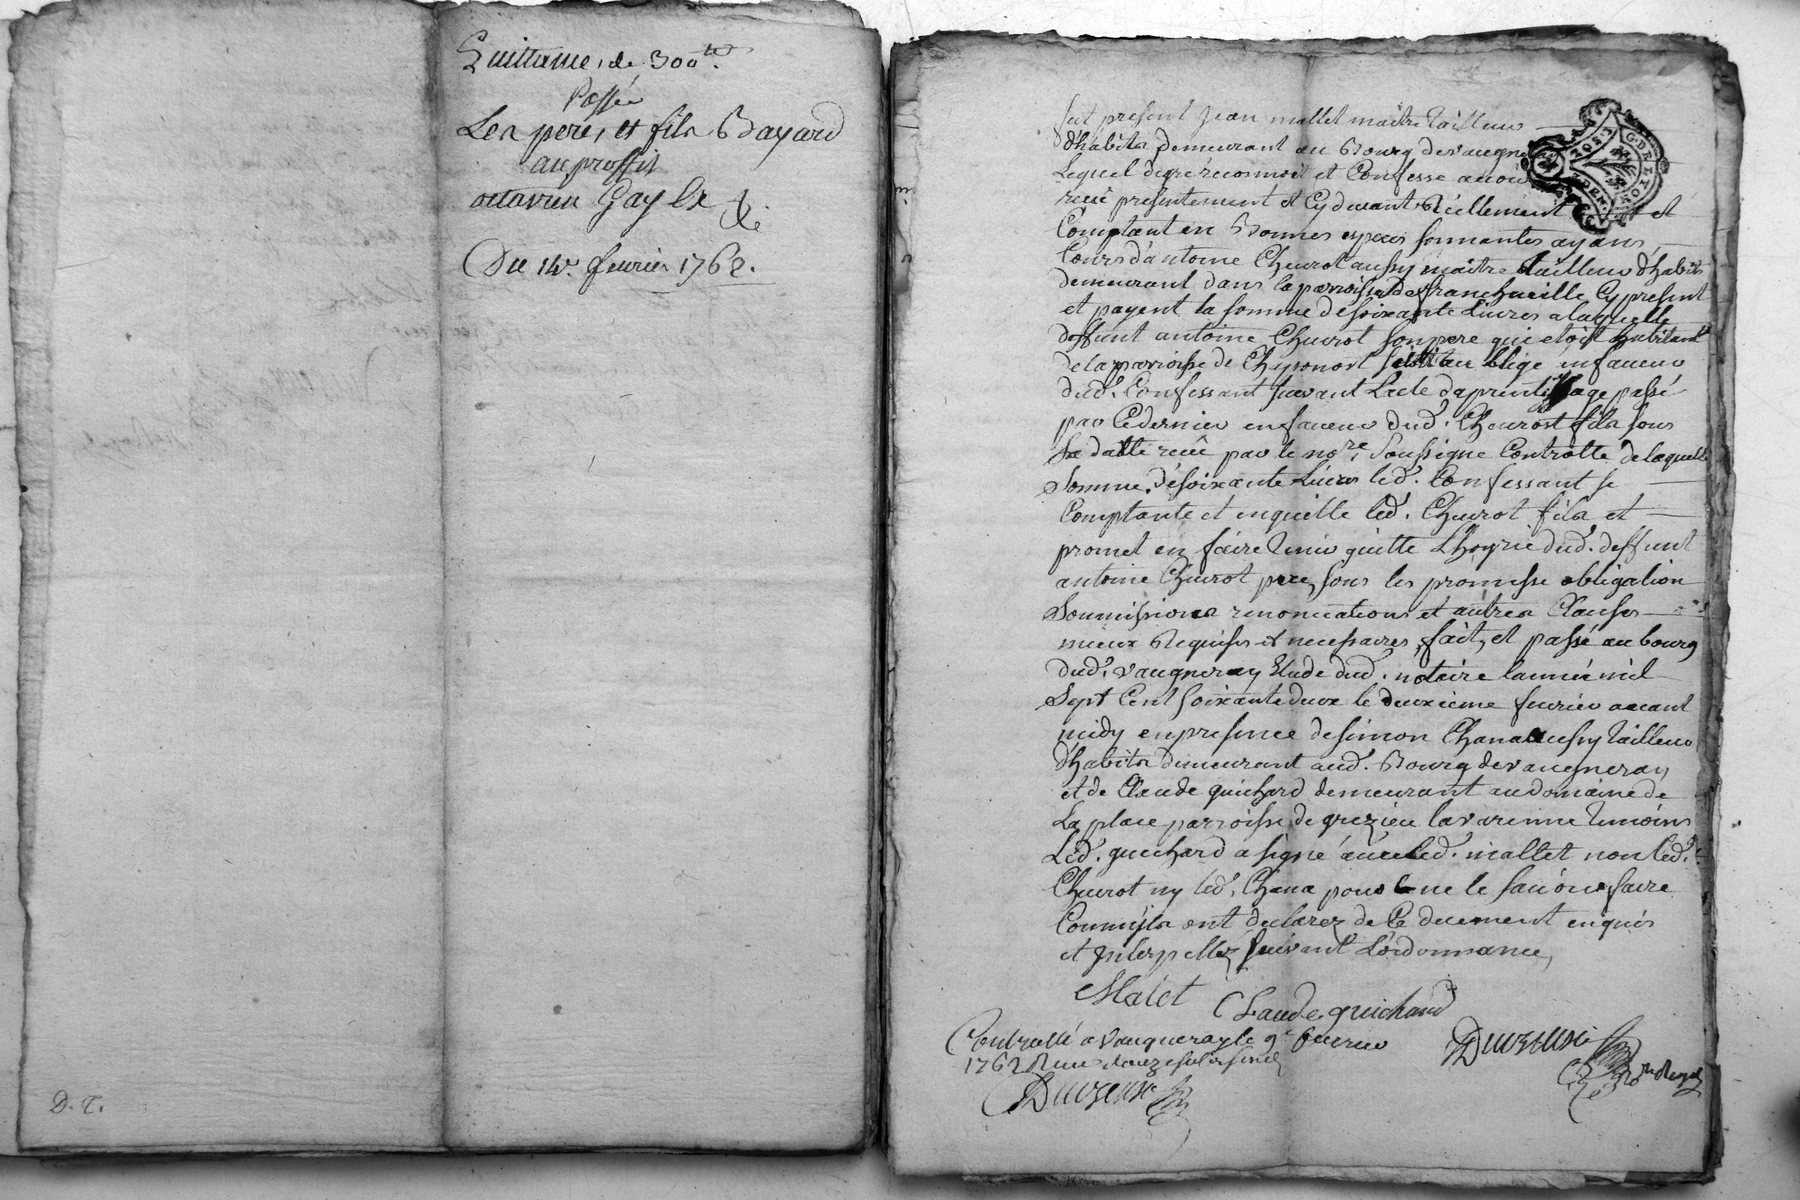 Quittance de 300ᵗᵗ.
Passée
Les pere, et fils Bayard
au proffit
octavien Gayle
Du 14e. fevrier 1762.
D. T.
fut present Jean mallet maitre tailleur
d'habits demeurant au Bourg de vaugne
Lequel degré reconnoit et Confesse avoir
receu presentement et Cydevant Réellement et
Comptant en Bonnes especes sonnantes ayans
Cours d'antoine Cheurot aussy maitre tailleur d'habits
demeurant dans la parroisse de francheville Cy present
et payent la somme de soixante Livres a laquelle
deffunt antoine Cheurot son pere qui etoit habitant
de la parroisse de Chaponost s'etoit oblige en faveur
dud. Confessant suivant L'acte d'aprentissage passé
par Cedernier en faveur dud. Cheurot fils sous
Sa datte receu par le nore. soussigne Controllé de laquelle
Somme de soixante Livres led. Confessant se
Comptante et en quitte led. Cheurot fils et
promet en faire tenir quitte L'hoyrie dud. deffunt
antoine Cheurot pere, sous les promesse obligation
Soumissions renonciations et autres Clauses
mieux Requises et necessaires, fait, et passé au bourg
dud. vaugneray Etude dud. notaire l'année mil
Sept Cent soixante deux le deuxieme fevrier avant
midy en presence de simon Chana aussy tailleur
d'habits demeurant aud. Bourg de vaugneray
et de Claude guichard demeurant au domaine de
La place parroisse de grezieu la varenne temoins
Led. guichard a signé avec led. mallet non led.
Cheurot ny led. Chana pour ne le scavoir faire
Comm'ils ont declarez de Ce duement enquis
et Interpellez suivant L'ordonnance,
Malet
Claude guichard
Controllé a Vaugneray le 9e fevrier
1762 Receu douze sols